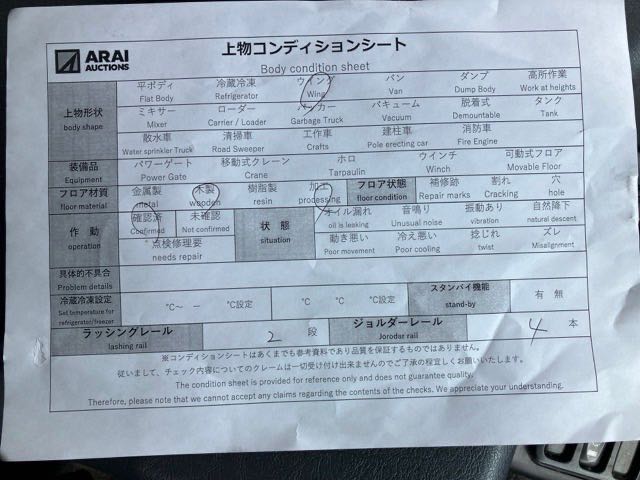 ARAI
AUCTIONS
上物コンディションシート
Body condition sheet
上物形状
body shape
平ボディ 冷蔵冷凍 ウイング バン ダンプ 高所作業
Flat Body Refrigerator Wing Van Dump Body Work at heights
ミキサー ローダー パーカー バキューム 脱着式 タンク
Mixer Carrier / Loader Garbage Truck Vacuum Demountable Tank
散水車 清掃車 工作車 建柱車 消防車
Water sprinkler Truck Road Sweeper Crafts Pole erecting car Fire Engine
装備品 パワーゲート 移動式クレーン ホロ ウインチ 可動式フロア
Equipment Power Gate Crane Tarpaulin Winch Movable Floor
フロア材質 金属製 木製 樹脂製 加工 フロア状態 補修跡 割れ 穴
floor material metal wooden resin processing floor condition Repair marks Cracking hole
作 動
operation
確認済 未確認
Confirmed Not confirmed
*点検修理要
needs repair
状 態
situation
オイル漏れ 音鳴り 振動あり 自然降下
oil is leaking Unusual noise vibration natural descent
動き悪い 冷え悪い 捻じれ ズレ
Poor movement Poor cooling twist Misalignment
具体的不具合
Problem details
冷蔵冷凍設定
Set temperature for
refrigerator/freezer
℃～ ー ℃設定 ℃ ℃ ℃設定
スタンバイ機能
stand-by
有 無
ラッシングレール
lashing rail
2 段
ジョルダーレール
Jorodar rail
4 本
※コンディションシートはあくまでも参考資料であり品質を保証するものではありません。
従いまして、チェック内容についてのクレームは一切受け付け出来ませんのでご了承の程宜しくお願いいたします。
The condition sheet is provided for reference only and does not guarantee quality.
Therefore, please note that we cannot accept any claims regarding the contents of the checks. We appreciate your understanding.